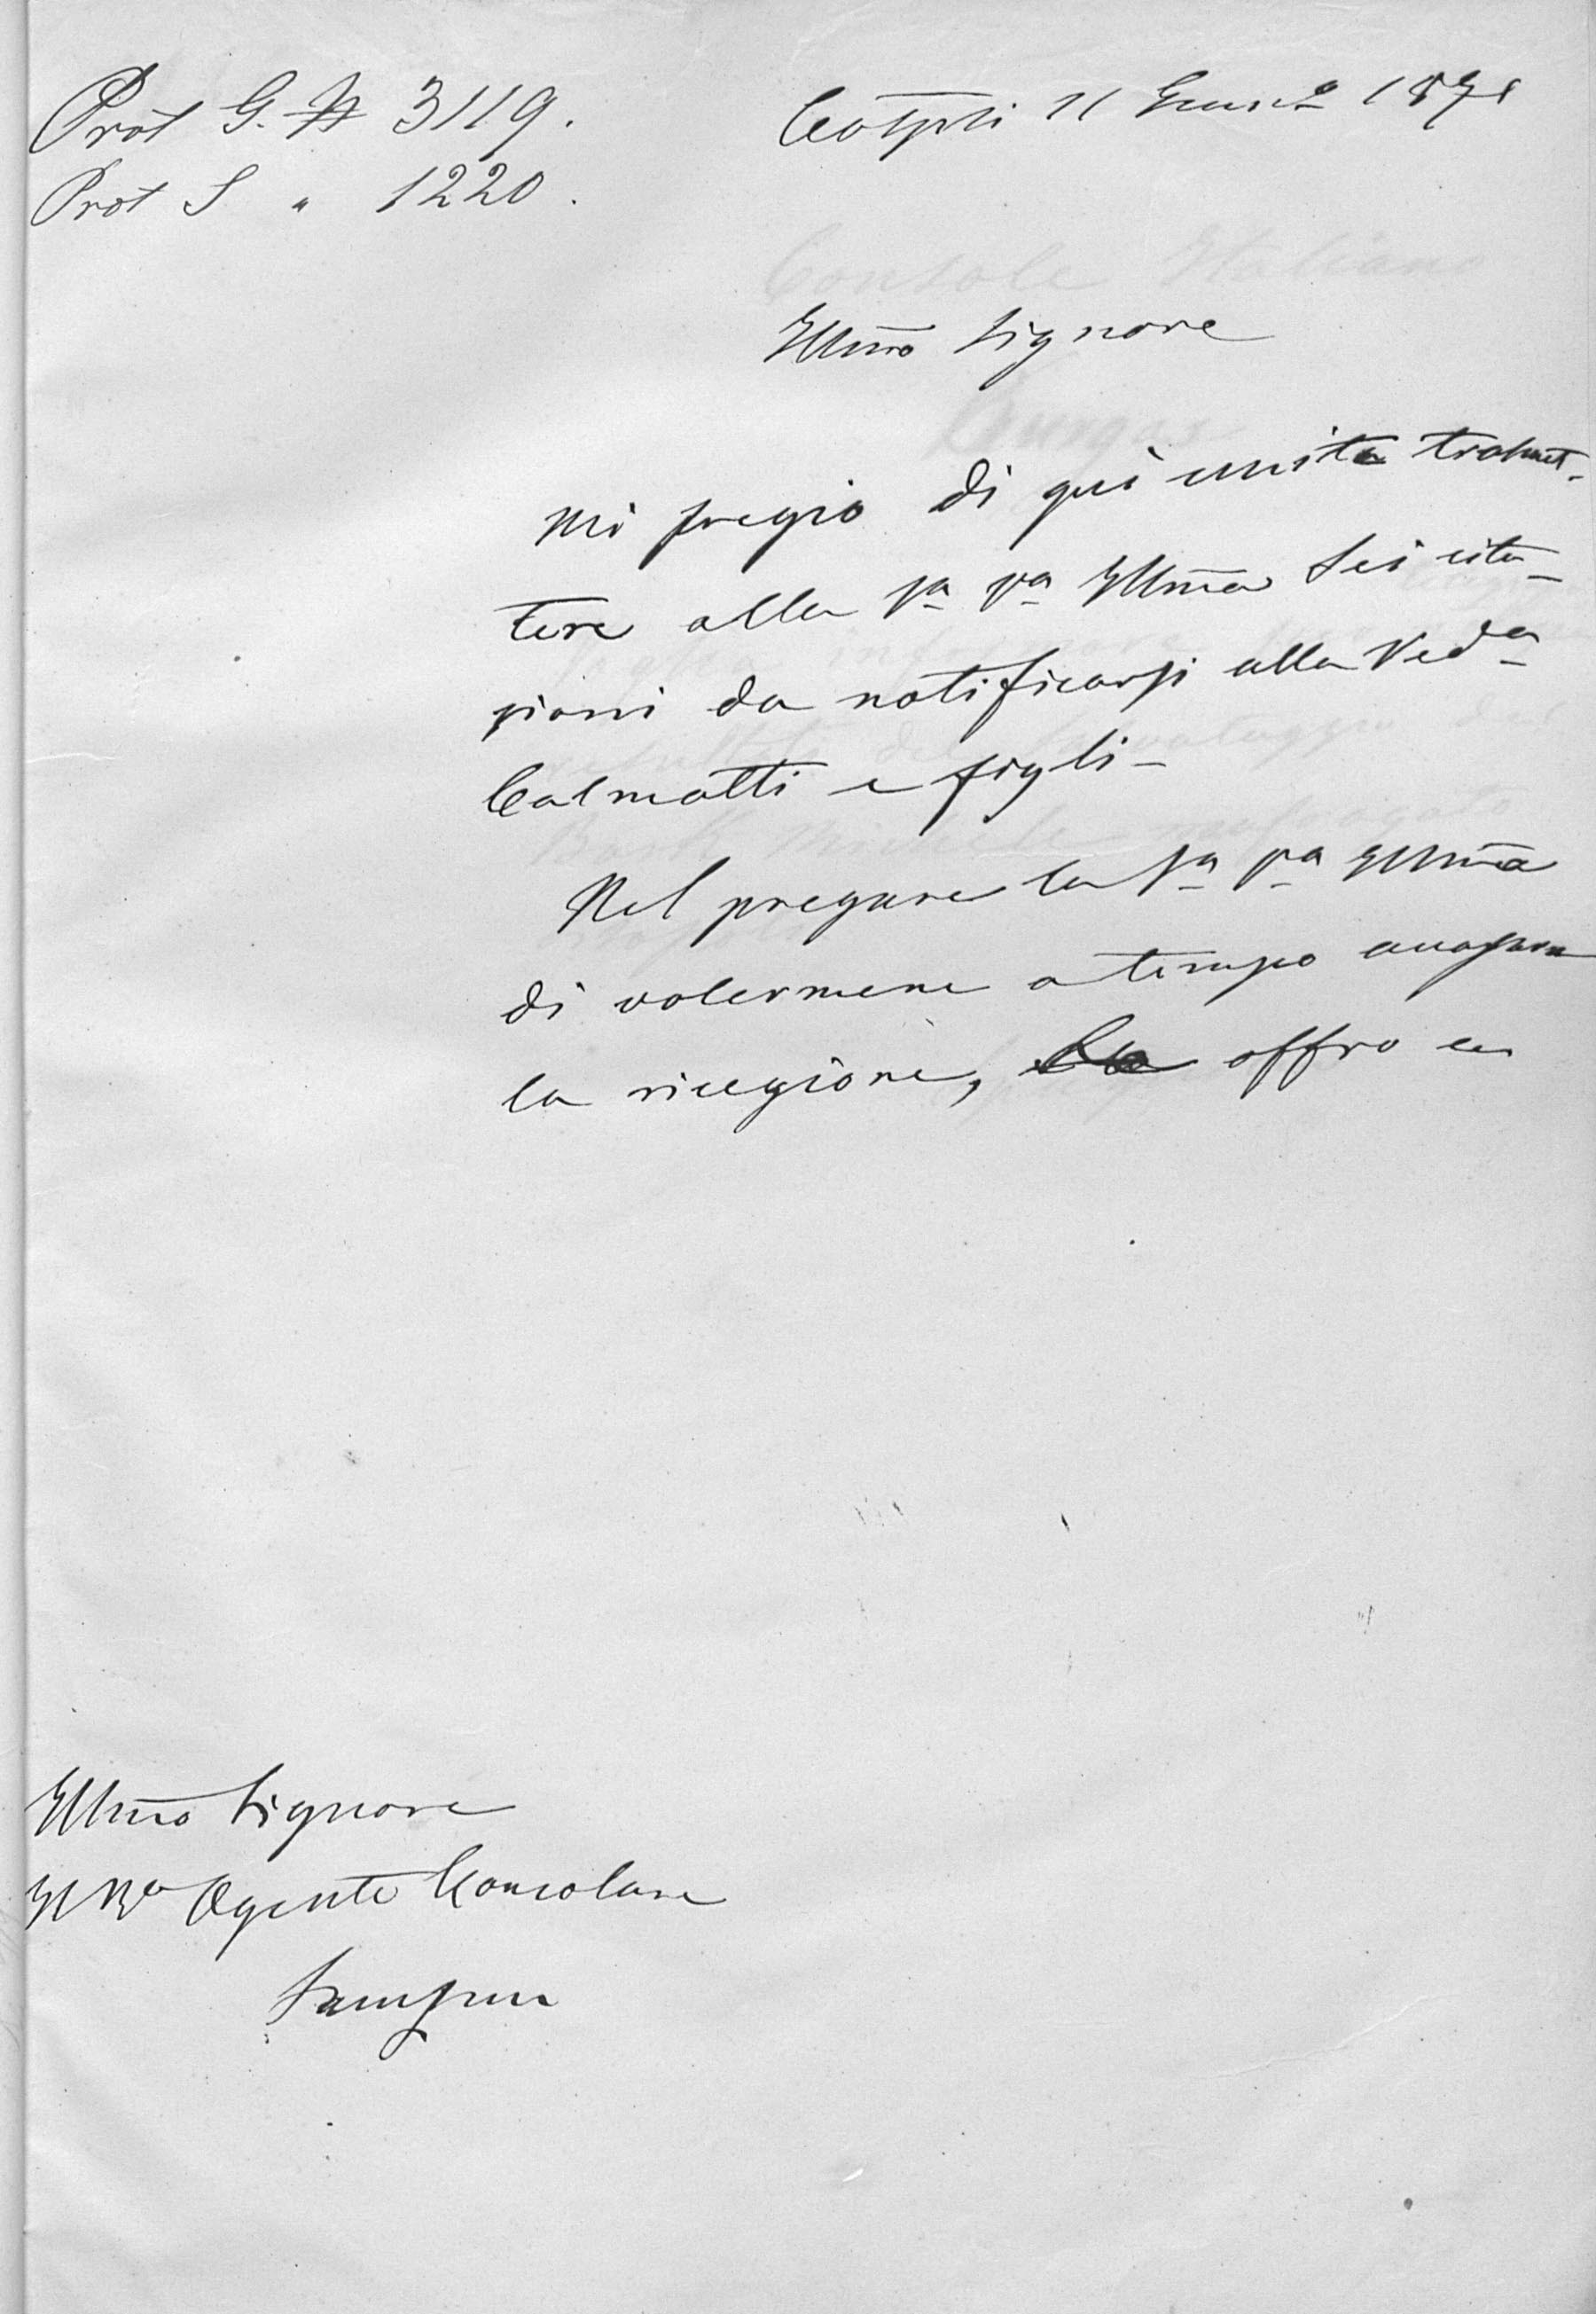 Prot G. N 3119.
Prot S " 1220.
Cotpli 11 1878
Illmo Signore
Mi pregio di quì unite trasmet-
tere alla Sa Va Illma Sei cita-
zioni da notificarsi alla Veda
Calmatti e figli -
Nel pregare la Sa Va Illma
di volermene a tempo accusare
la ricezione, offro
Illmo Signore
Il Ro Agente Consolare
Samsun